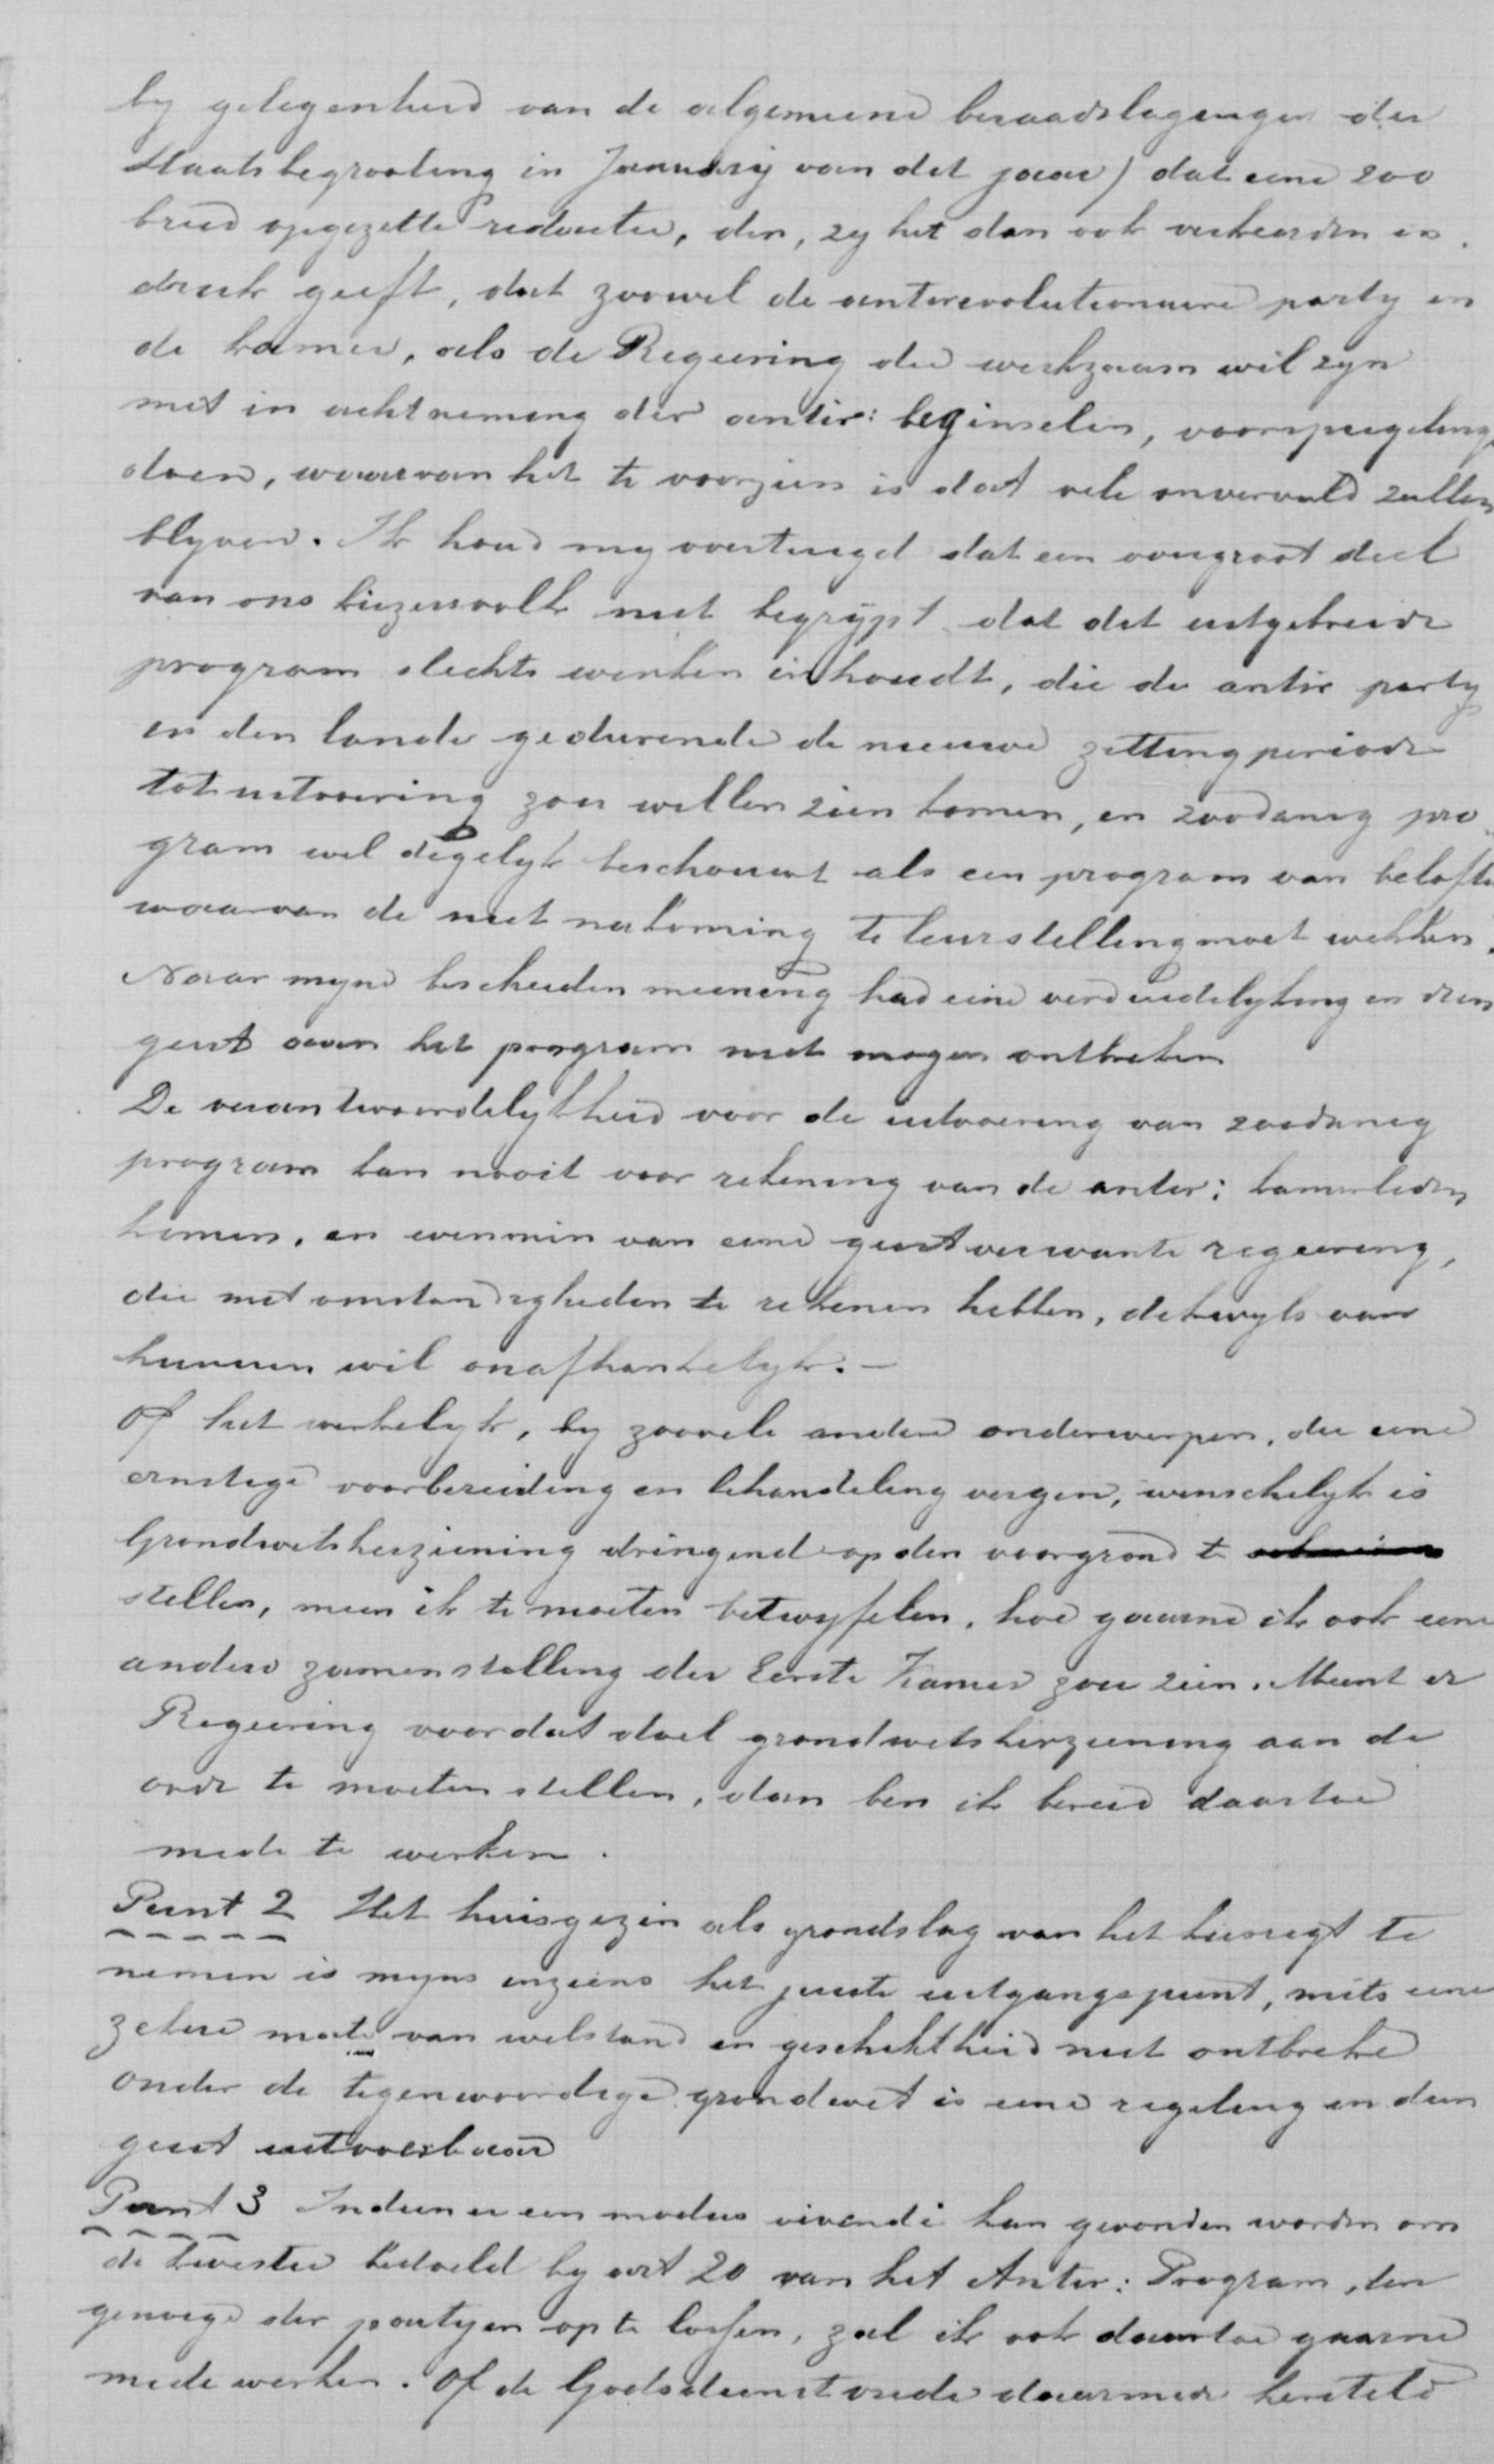 by gelegenheid van de algemeene beraadslagingen der
Staatsbegrooting in January van dit jaar) dat eene zoo
breed opgezette redactie, den, zy het dan ook verkeerden in-
druk geeft, dat zoowel de antirevolutionaire party in
de kamer, als de Regeering die werkzaam wil zyn
met in achtneming der antir: beginselen, voorspiegeling
doen, waarvan het te voorzien is dat vele onvervuld zullen
blyven. Ik houd my overtuigd dat een overgroot deel
van ons kiezersvolk niet begrypt dat dit uitgebreide
program slechts wenken inhoudt, die de antir party
in den lande gedurende de nieuwe zittingperiode
tot uitvoering zou willen zien komen, en zoodanig pro-
gram wel degelyk beschouwt als een program van belofte
waarvan de niet nakoming te leurstelling moet wekken.
Naar myne bescheiden meening had eene verduidelyking in dien
geest aan het program niet mogen ontbreken
De verantwoordelykheid voor de uitvoering van zoodanig
program kan nooit voor rekening van de antir: kamerleden
komen, en evenmin van eene geestverwante regeering,
die met omstandigheden te rekenen hebben, dikwyls van
hunnen wil onafhankelyk. —
Of het werkelyk, by zoovele andere onderwerpen, die eene
ernstige voorbereiding en behandeling vergen, wenschelyk is
Grondwetsherziening dringend op den voorgrond te
stellen, meen ik te moeten betwyfelen, hoe gaarne ik ook eene
andere zamenstelling der Eerste Kamer zou zien. Meent de
Regeering voor dat doel grondwetsherziening aan de
orde te moeten stellen, dan ben ik bereid daartoe
mede te werken.
Punt 2 Het huisgezin als grondslag van het kiesregt te
nemen is myns inziens het juiste uitgangspunt, mits eene
zekere mate van welstand en geschiktheid niet ontbreke
Onder de tegenwoordige grondwet is eene regeling in dien
geest uitvoerbaar
Punt 3 Indien er een modus vivendi kan gevonden worden om
de kwestie bedoeld by art 20 van het Antir: Program, ten
genoege der partyen op te lossen, zal ik ook daartoe gaarne
mede werken. Of de Godsdienstvrede daarmede hersteld